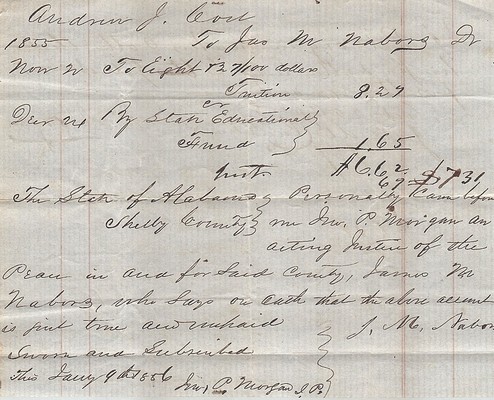 Andrew J. Cost
1855 To Jas M Nabors Dr
Nov 2 To Eight & 27/100 dollars
Tuition 8.27
Cr
Decr 24 By State Educational
Fund 1.65
$6.62
69 $7.31
The State of Alabama } Personally Came before
Shelby County } me Jno. P. Morgan an
acting Justice of the
Peace in and for Said County, James M
Nabors, who Says on oath that the above account
is just true and unpaid
Sworn and Subscribed } J. M. Nabors
This Jany 9th 1856
Jno, P. Morgan J. P.